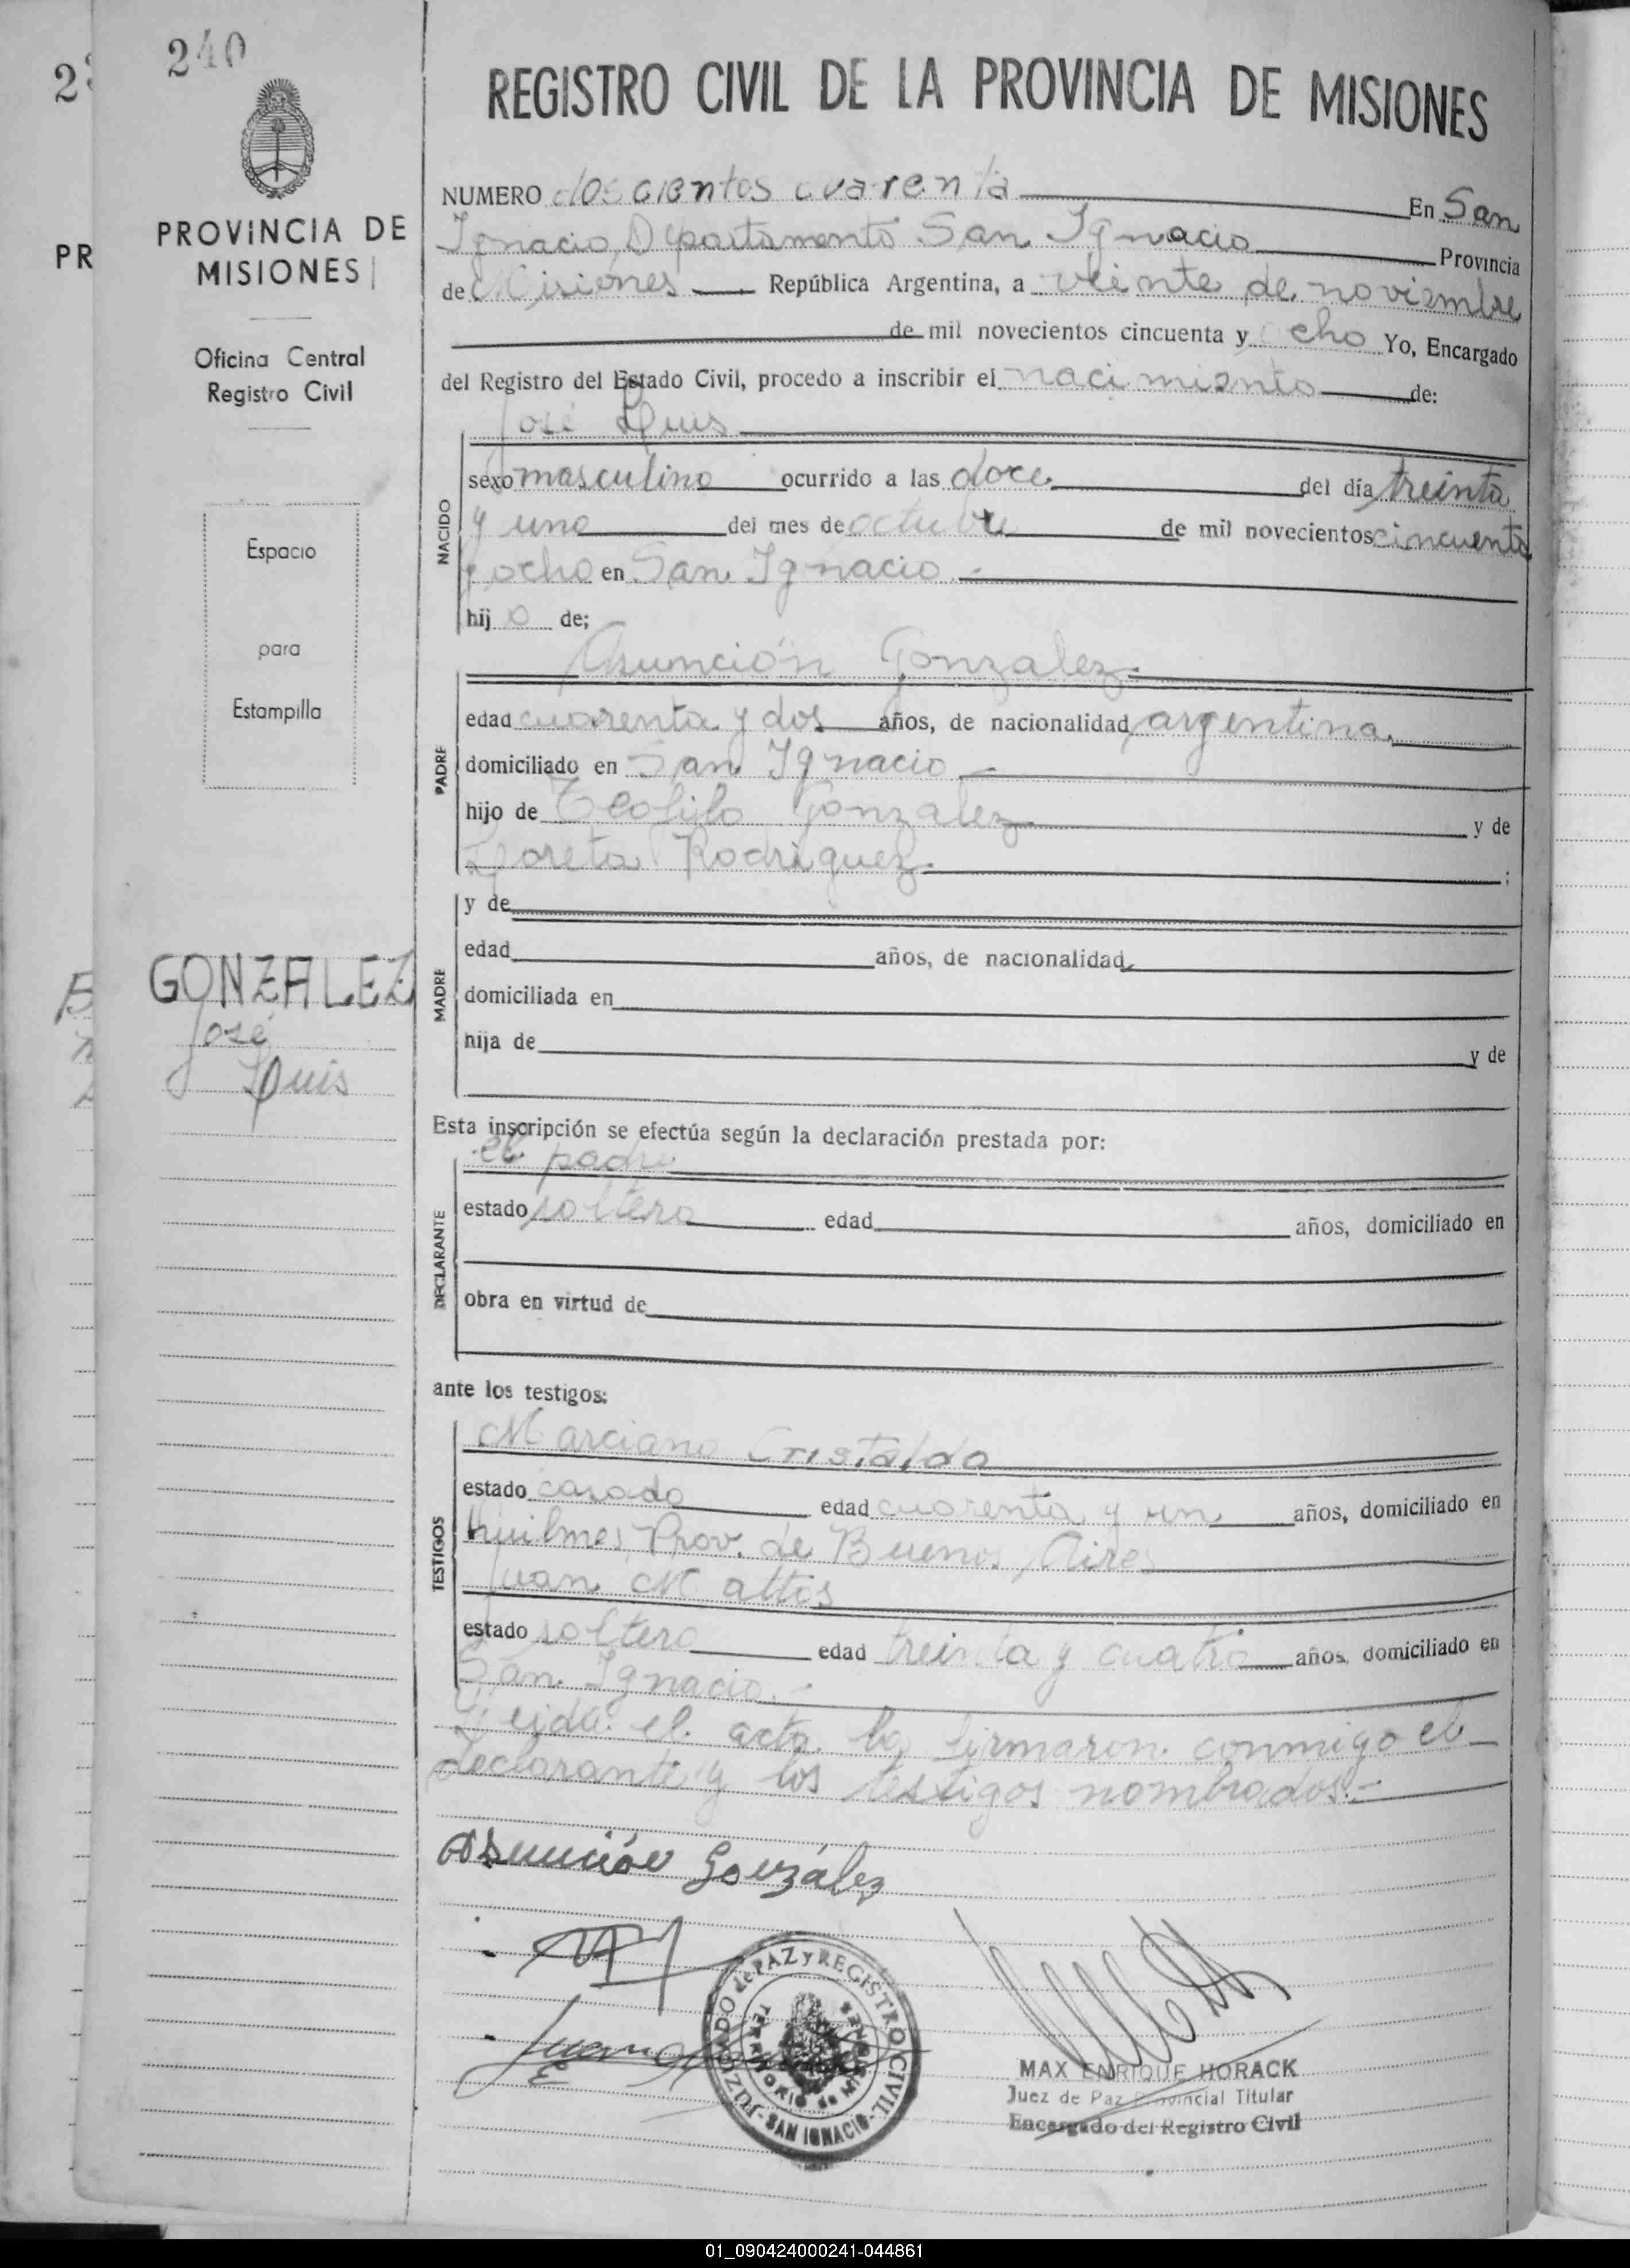 240
PROVINCIA DE
MISIONES
Oficina Central
Registro Civil
Espacio
para
Estampilla
GONZALEZ
José
Luis
REGISTRO CIVIL DE LA PROVINCIA DE MISIONES
NUMERO doscientos cuarenta En San
Ignacio, Departamento San Ignacio Provincia
de Misiones República Argentina, a veinte de noviembre
de mil novecientos cincuenta y ocho Yo, Encargado
del Registro del Estado Civil, procedo a inscribir el nacimiento de:
José Luis
NACIDO
sexo masculino ocurrido a las doce. del día treinta
y uno del mes de octubre de mil novecientos cincuenta
y ocho en San Ignacio.-
hijo de;
PADRE
Asunción Gonzalez
edad cuarenta y dos años, de nacionalidad argentina,
domiciliado en San Ignacio -
hijo de Teofilo Gonzalez y de
Loreta Rodriguez. ;
MADRE
y de
edad años, de nacionalidad
domiciliada en
hija de y de
Esta inscripción se efectúa según la declaración prestada por:
DECLARANTE
el padre
estado soltero edad años, domiciliado en
obra en virtud de
ante los testigos:
TESTIGOS
Marciano Cristaldo
estado casado edad cuarenta y un años, domiciliado en
Quilmes, Prov. de Buenos Aires
Juan Mattos
estado soltero edad treinta y cuatro años, domiciliado en
San Ignacio.-
Leida el acta la firmaron conmigo el
declarante y los testigos nombrados.-
Asunción González
JUZGADO de PAZ y REGISTRO CIVIL
TERRITORIO de MISIONES
-SAN IGNACIO-
MAX ENRIQUE HORACK
Juez de Paz Provincial Titular
Encargado del Registro Civil
PR
01_090424000241-044861